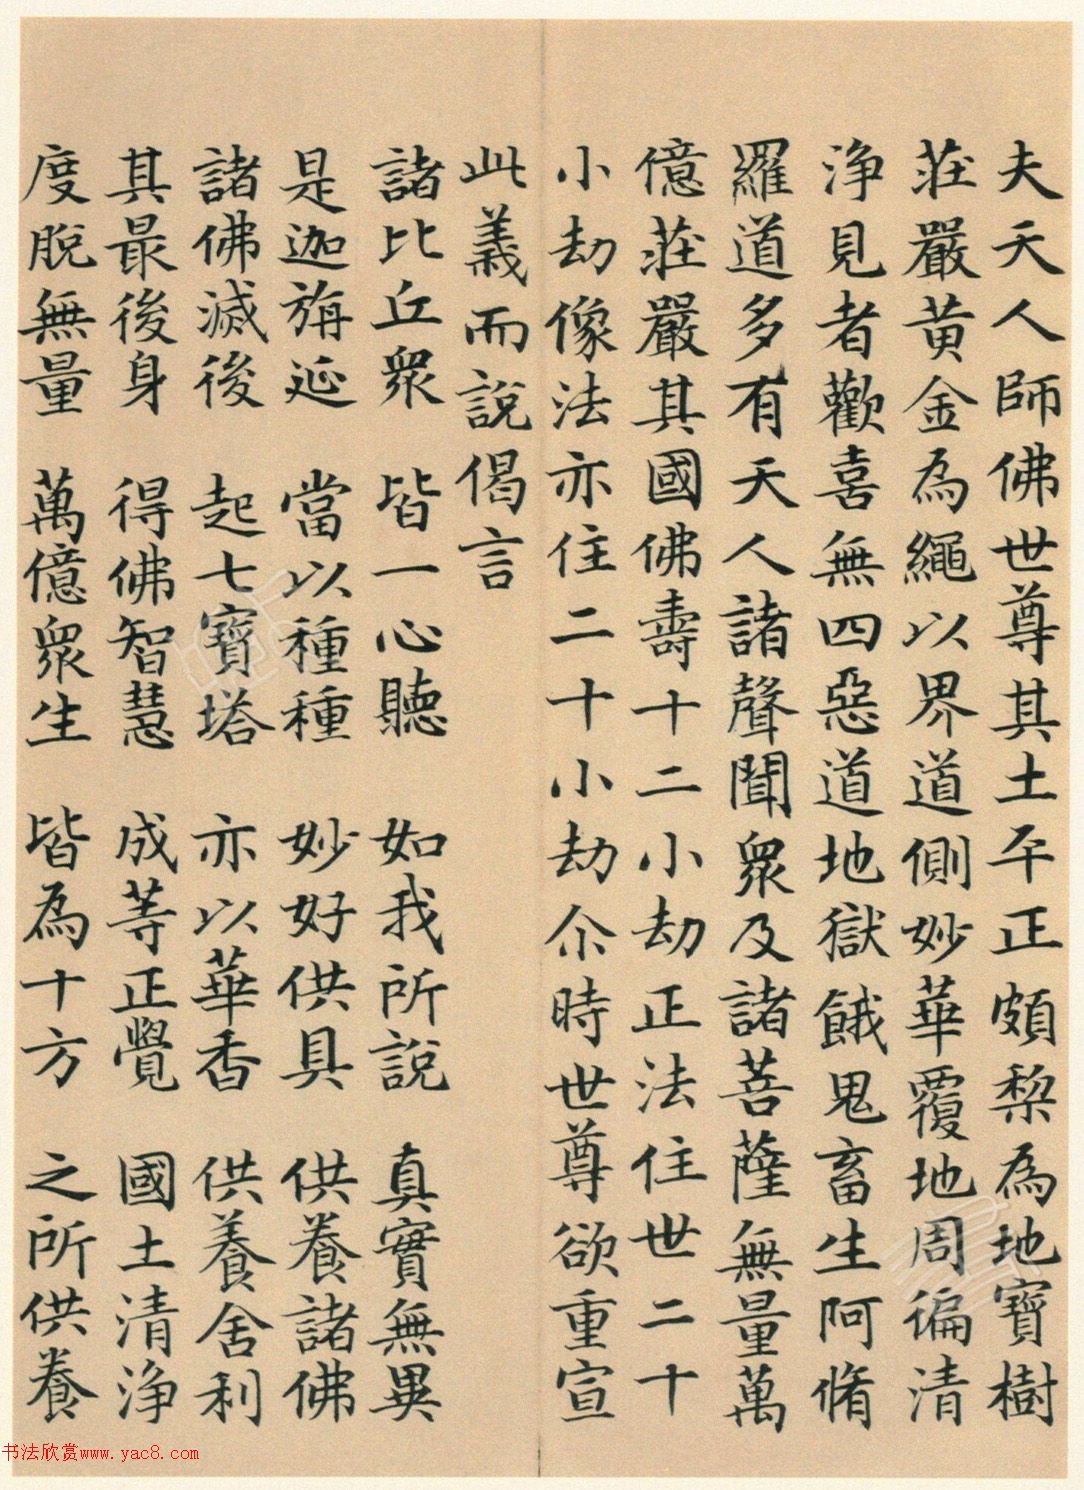 夫天人師佛世尊其土平正頗梨為地寶樹
莊嚴黃金為繩以界道側妙華覆地周徧清
淨見者歡喜無四惡道地獄餓鬼畜生阿脩
羅道多有天人諸聲聞眾及諸菩薩無量萬
億莊嚴其國佛壽十二小劫正法住世二十
小劫像法亦住二十小劫尒時世尊欲重宣
此義而說偈言
諸比丘眾 皆一心聽 如我所說 真實無異
是迦旃延 當以種種 妙好供具 供養諸佛
諸佛滅後 起七寶塔 亦以華香 供養舍利
其最後身 得佛智慧 成等正覺 國土清淨
度脫無量 萬億眾生 皆為十方 之所供養
书法欣赏www.yac8.com